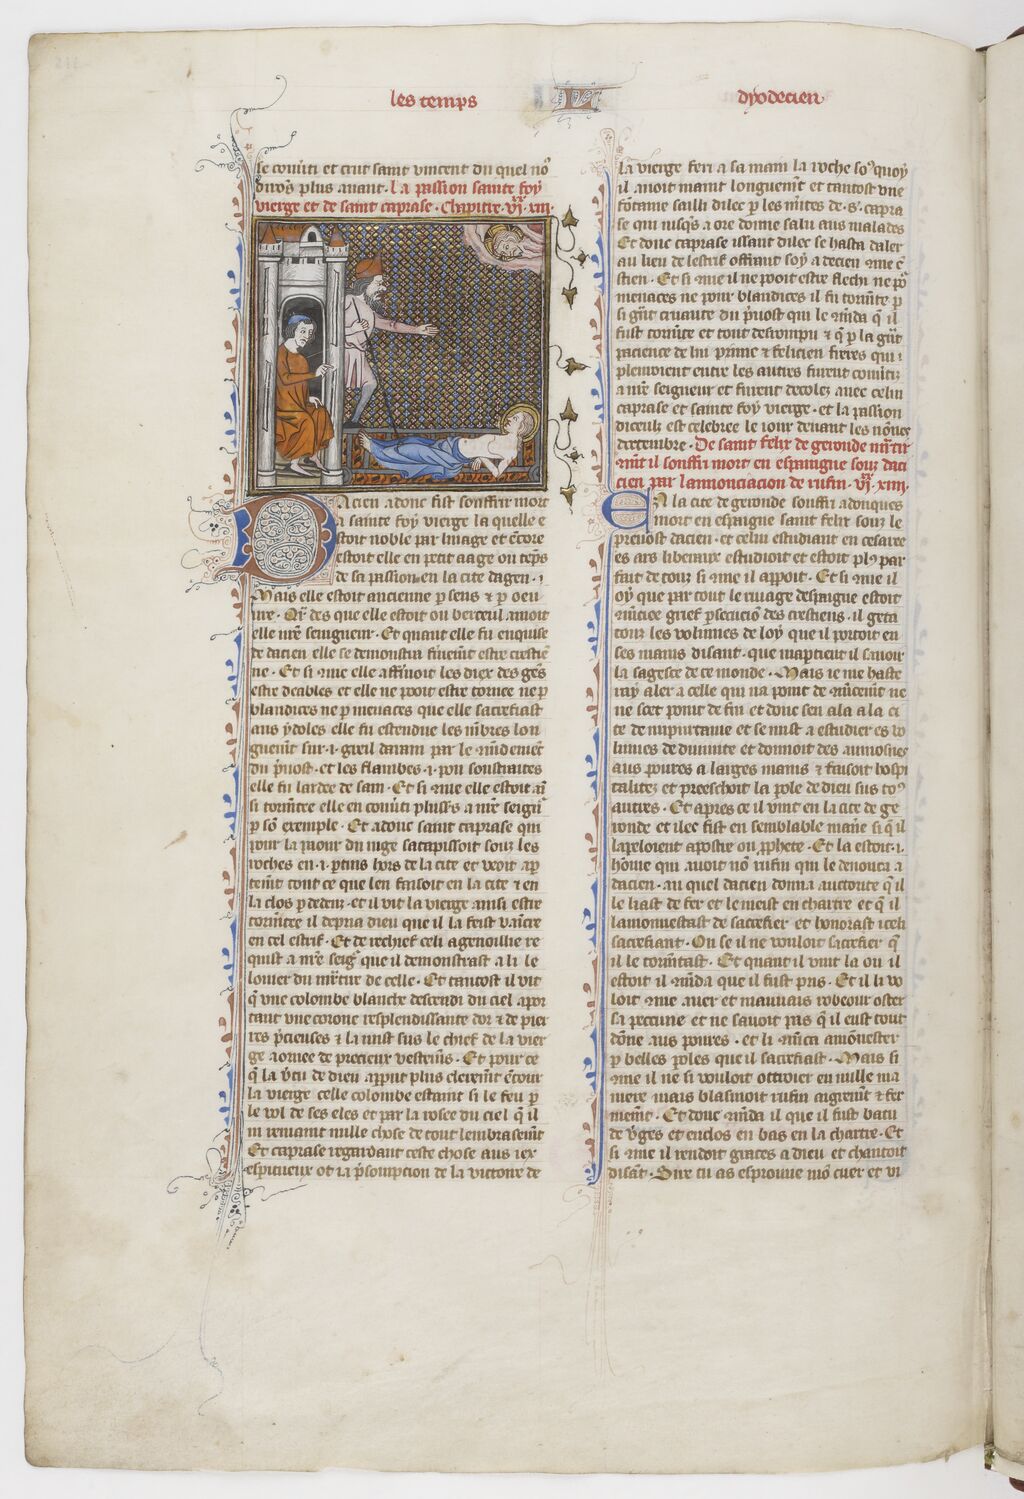 les temps
dyoclecien
se conuiti et crut saint vincent du quel no⁹
duros plus auant · La passion sainte foy
vierge et de saint caprase · Chapitre · vi · xiii ·
Dacien adonc fist souffrir mort
a sainte foy vierge la quelle e
stoit noble par linage et ecore
estoit elle en petit aage ou teps
de sa passion en la cite dagen ·
Mais elle estoit ancienne p sens et p oeu
ure · des que elle estoit ou berceul amoit
elle nre seigneur · Et quant elle fu enquise
de dacien elle se demonstra estre crestie
ne · Et si que elle affinoit les diex des ges
estre deables et elle ne pooit estre tornee ne p
blandices ne p menaces que elle sacrefiast
aus ydoles elle fu estendue les mbres lon
guemt sur · i · greil darain par le
du puost · et les flambes
elle fu lardee de sain · Et si que elle estoit
si tormtee elle en couiti pluss a nre seignr
p so exemple · Et adonc saint caprase qui
pour la paour du iuge satapissoit souz les
roches en · i · ptuis hors de la cite et veoit ap
temt tout ce que len faisoit en la cite et en
la clos p dedenz · et il vit la vierge ainsi estre
tormtee il depria dieu que il la feist vaicre
en cel estrif · Et de rechief celi agenoillie re
quist a nre seigr que il demonstrast a li le
louier du mrtire de celle · Et tantost il vit
q vne colombe blanche descendi du ciel apor
tant vne corone resplendissante dor et de pier
res pcieuses et la mist sus le chief de la vier
ge aornee de precieux vestemes · Et pour ce
q la vtu de dieu apput plus cleremt etour
la vierge celle colombe estaint si le feu p
le vol de ses eles et par la rosee du ciel q il
ni remaint nulle chose de tout lembrasemt
Et caprase regardant ceste chose aus iex
espiritueux ot la psompcion de la victoire de
la vierge feri a sa main la roche so⁹ quoy
il auoit maint longuemt et tantost vne
fotaine sailli dilec p les mites de · s · capra
se qui iusqs a ore donne salu aus malades
Et donc caprase issant dilec se hasta daler
au lieu de lestrif offrant soy a decien que
stien · Et si que il ne pooit estre flechi ne po
menaces ne pour blandices il fu tormte p
si gnt cruaute du puost qui le mda q il
fust tormte et tout desrompu et q p la gnt
pacience de lui prime et felicien freres qui
plemoient entre les autres furent couitiz
a nre seigneur et furent decolez auec celui
caprase et sainte foy vierge · et la passion
diceulx est celebree le iour deuant les nones
doctembre · De saint felix de gironde mrtir
il souffri mort en espaingne souz daci
cien par lannonciacion de rufin · vi · xiiii ·
En la cite de gironde souffri adonques
mort en espaigne saint felix souz le
preuost dacien · et celui estudiant en cesaree
es ars liberaux estudioit et estoit pl⁹ par
fait de touz si que il appoit · Et si que il
oy que par tout le riuage despaigne estoit
grief psecucio des crestiens · il geta
touz les volumes de loy que il portoit en
ses mains disant · que mapartient il sauoir
la sagesce de ce monde · Mais ie me haste
ray aler a celle qui na point de mucemt ne
ne scet point de fin et donc sen ala a la ci
te de et se mist a estudier es vo
lumes de diuinite et donnoit des aumosnes
aus poures a larges mains et faisoit hospi
talitez et preeschoit la pole de dieu sus to⁹
autres · Et apres ce il vint en la cite de ge
ronde et ilec fist en semblable maiere si q il
lapeloient apostre ou pphete · Et la estoit · i ·
home qui auoit no rufin qui le denonca a
dacien · au quel dacien donna auctorite q il
le liast de fer et le meist en chartre et q il
lamonnestast de sacrefier et honorast iceli
sacrefiant · Ou se il ne vouloit sacrefier q
il le tormtast · Et quant il vint la ou il
estoit il mda que il fust pris · Et il li vo
loit que auer et mauuais robeour oster
sa peccune et ne sauoit pas q il eust tout
done aus poures · et li amonester
p belles poles que il sacrefiast · Mais si
que il ne si vouloit ottroier en nulle ma
niere mais blasmoit rufin aigremt et fer
memt · Et donc mda il que il fust batu
de vges et enclos en bas en la chartre · Et
si que il rendoit graces a dieu et chantoit
disat · Sire tu as esprouue mo cuer et vi